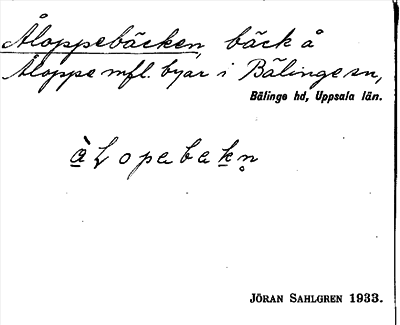 Åloppebäcken, bäck å
Åloppe mfl. byar i Bälinge sn,
Bälinge hd, Uppsala län.
à̲ L o p a b a k̲ n̥
JÖRAN SAHLGREN 1933.